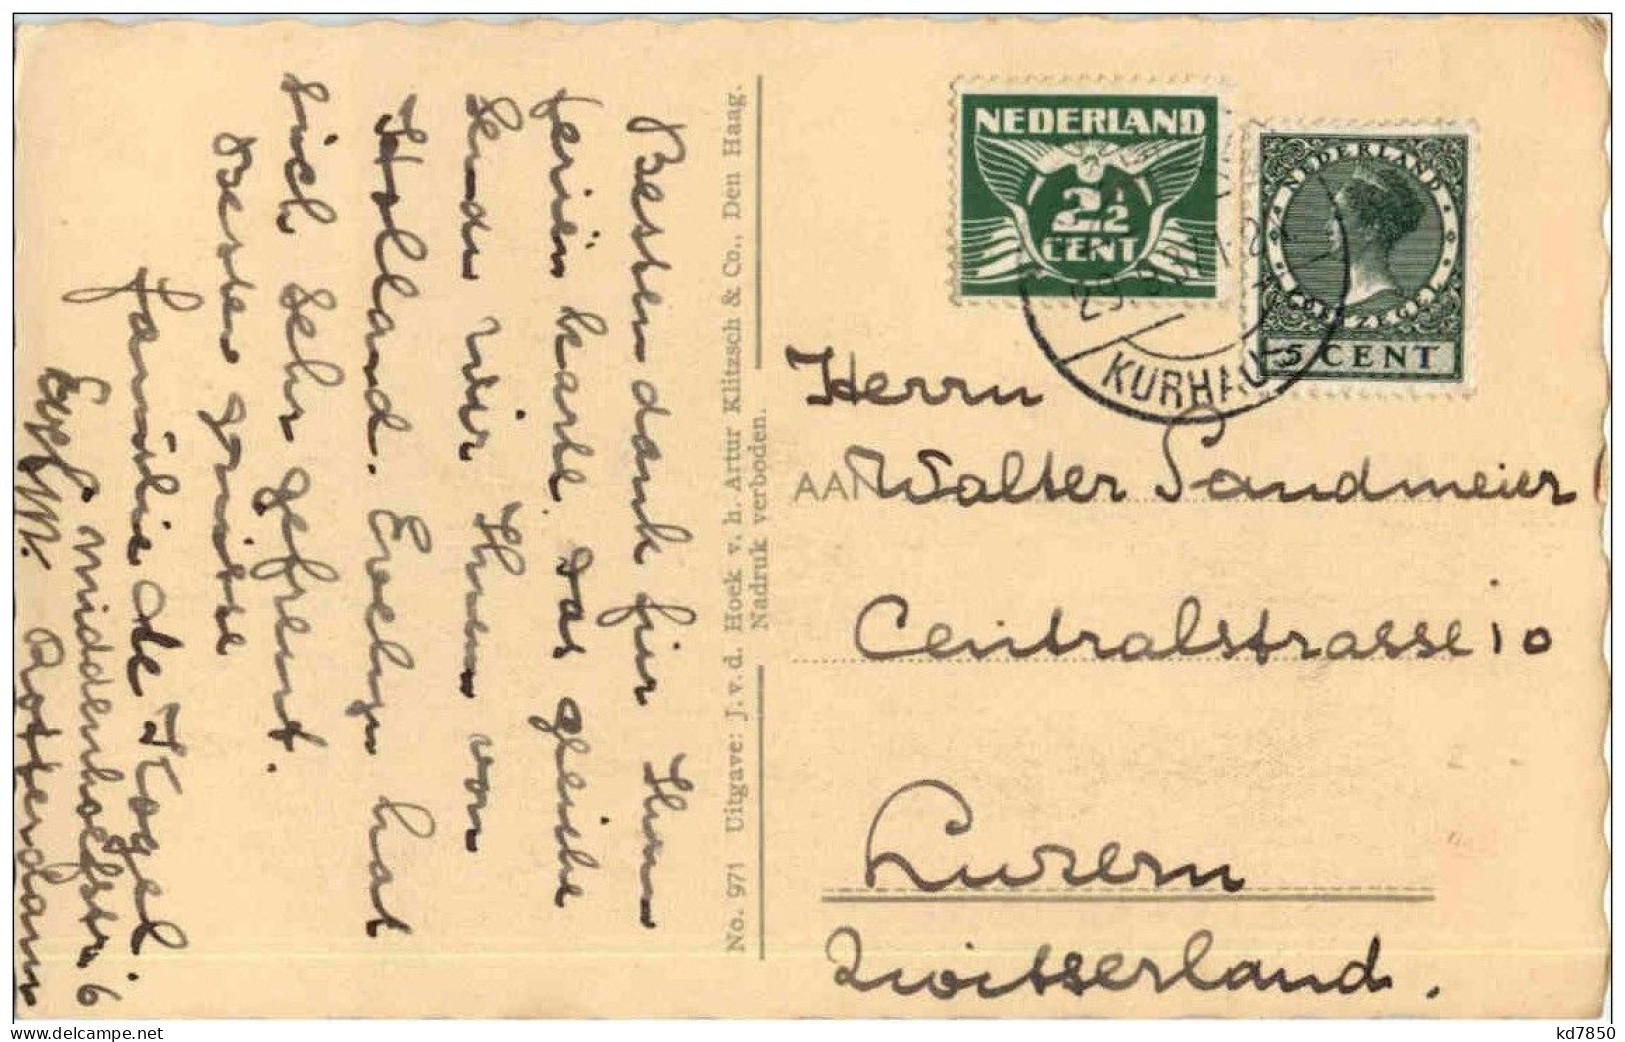 Besten dank für Ihren
ferien karte. Das gleiche
senden wir Ihnen von
Holland. Evelyn hat
sich sehr gefreut.
Besten grüsse
familie de Kogel
middenhoefstr. 6
Rotterdam
No. 971 Uitgave: J. v. d. Hoek v. h. Artur Klitzsch & Co., Den Haag.
Nadruk verboden.
NEDERLAND
2½
CENT
NEDERLAND
5 CENT
KURHAUS
Herrn
AAN Walter Sandmeier
Centralstrasse 10
Luzern
Zwitserland.
kd7850